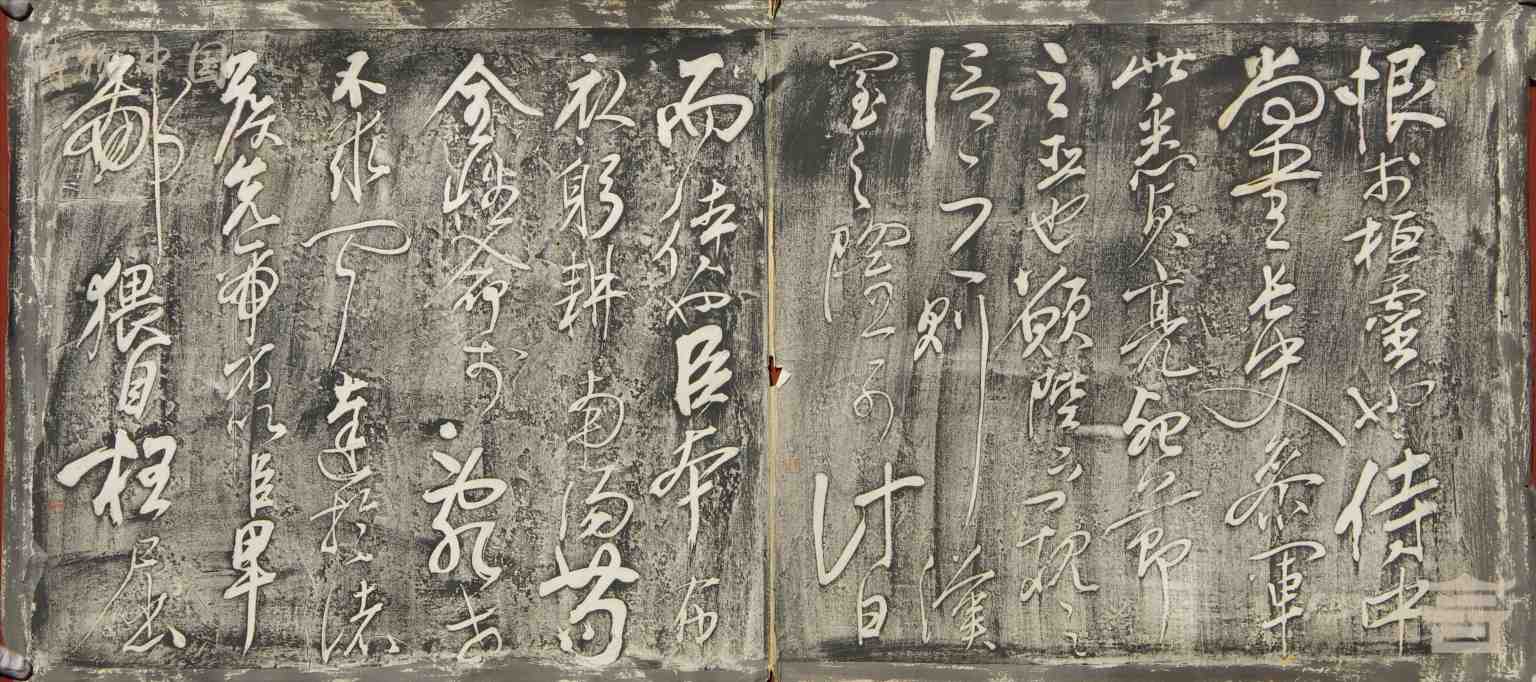 恨於桓靈也侍中
尚書長史參軍
此悉貞亮死節
之臣也願陛下親之
信之則漢
室之隆可計日
而待也臣本布
衣躬耕南陽苟
全性命於亂世
不求聞達於諸
侯先帝不以臣卑
鄙猥自枉屈
中国